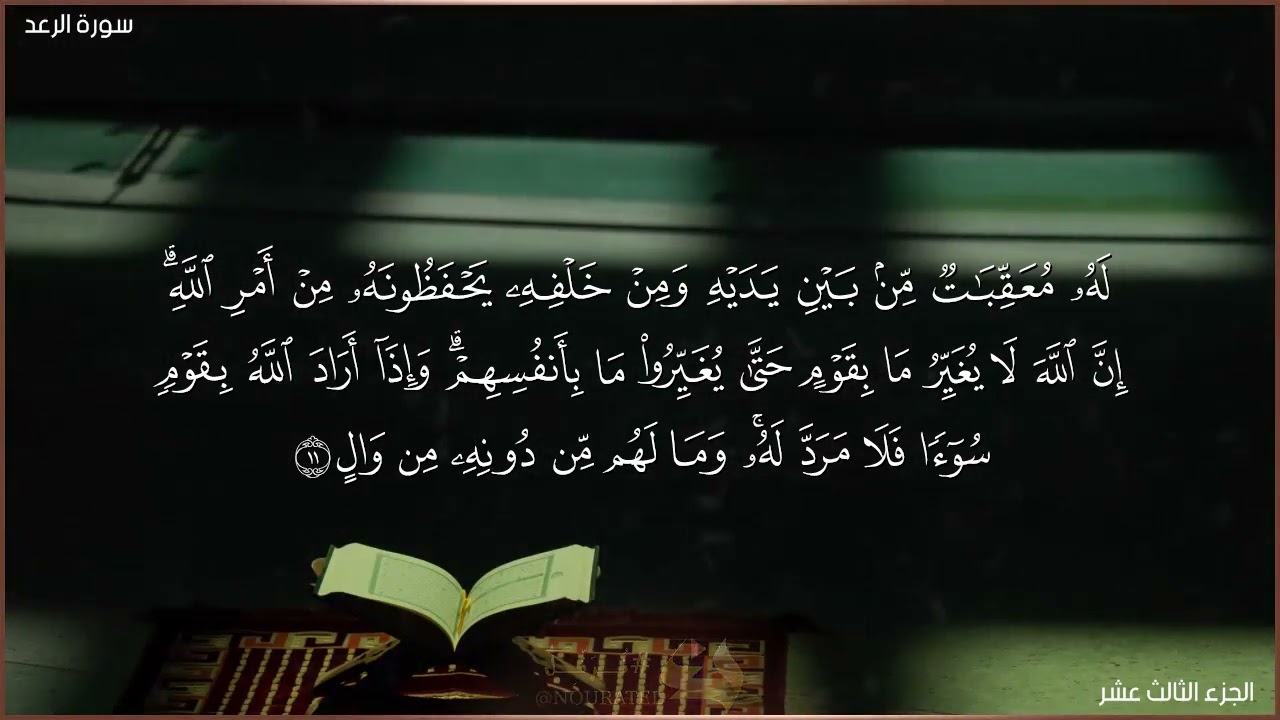 سورة الرعد
لَهُۥ مُعَقِّبَـٰتٌ مِّنۢ بَيْنِ يَدَيْهِ وَمِنْ خَلْفِهِۦ يَحْفَظُونَهُۥ مِنْ أَمْرِ ٱللَّهِ ۗ
إِنَّ ٱللَّهَ لَا يُغَيِّرُ مَا بِقَوْمٍ حَتَّىٰ يُغَيِّرُوا۟ مَا بِأَنفُسِهِمْ ۗ وَإِذَآ أَرَادَ ٱللَّهُ بِقَوْمٍ
سُوٓءًا فَلَا مَرَدَّ لَهُۥ ۚ وَمَا لَهُم مِّن دُونِهِۦ مِن وَالٍ ١١
@NOURATED
الجزء الثالث عشر